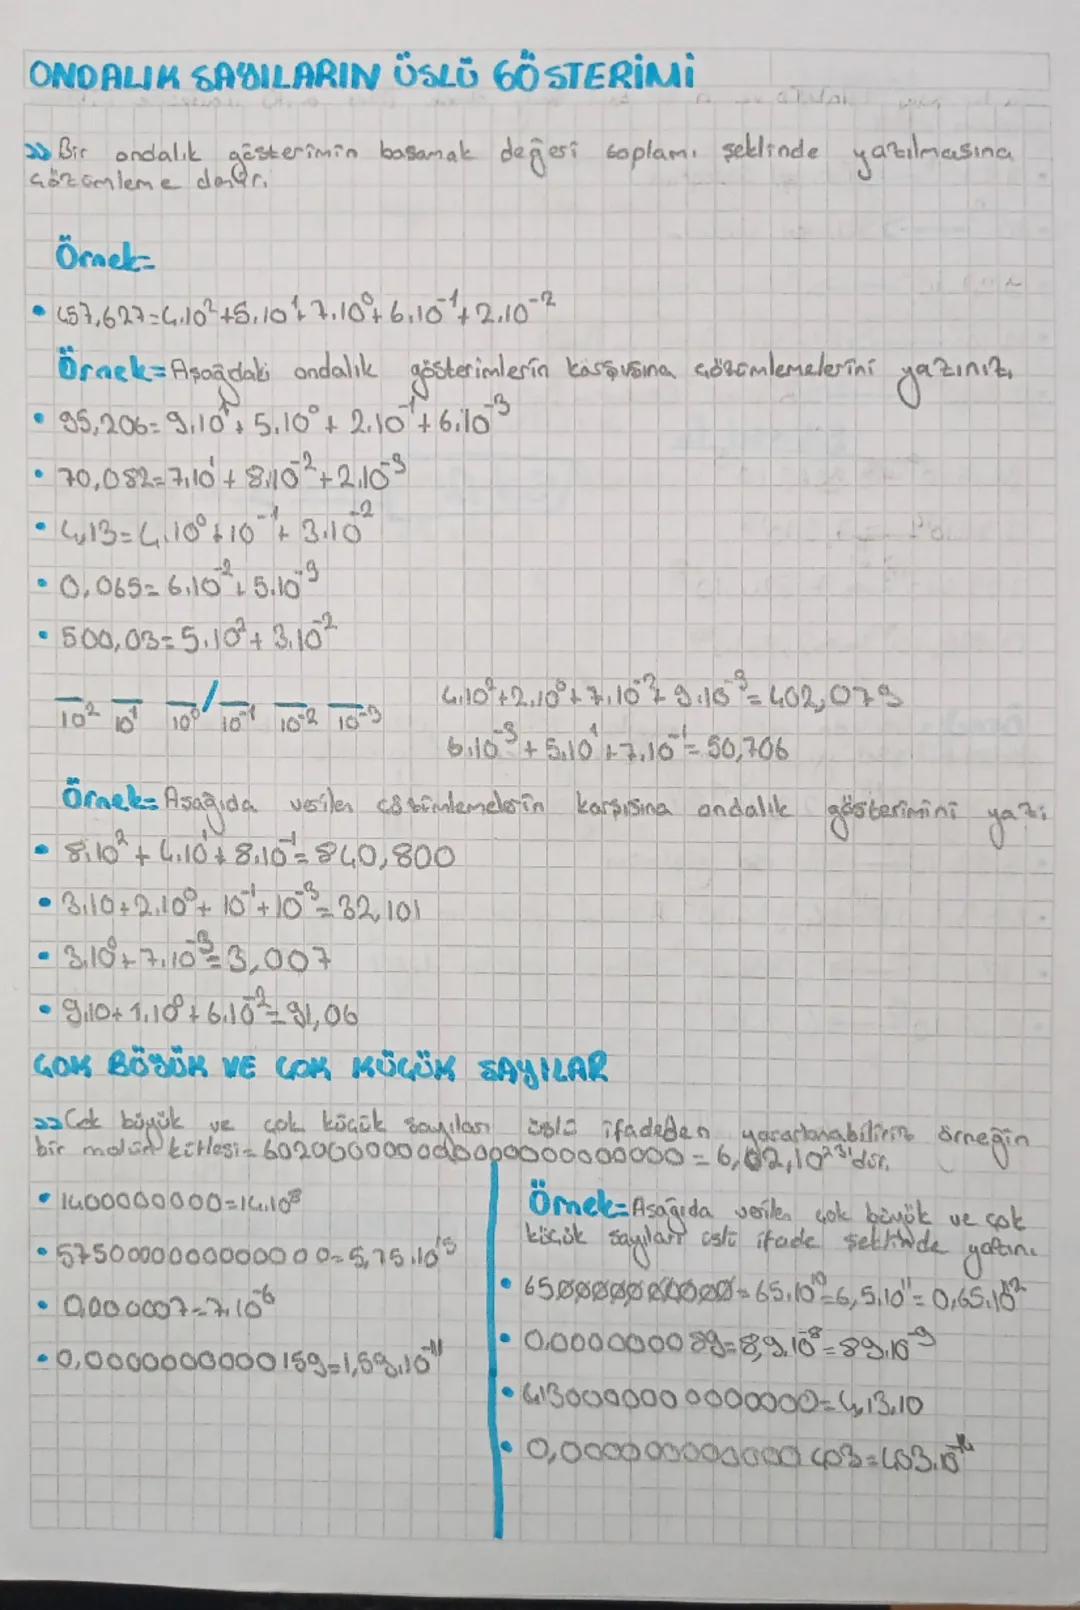 ONDALIK SAYILARIN ÜSLÜ GÖSTERİMİ
>> Bir ondalık gösterimin basamak değeri toplamı şeklinde yazılmasına
çözümleme denir.
Örnek=
• 457,627=4.10²+5.10¹+7.10⁰+6.10⁻¹+2.10⁻²
Örnek= Aşağıdaki ondalık gösterimlerin karşısına çözümlemelerini yazınız.
• 95,206=9.10¹+5.10⁰+2.10⁻¹+6.10⁻³
• 70,082=7.10¹+8.10⁻²+2.10⁻³
• 4,13=4.10⁰+10⁻¹+3.10⁻²
• 0,065=6.10⁻²+5.10⁻³
• 500,03=5.10²+3.10⁻²
10² 10¹ 10⁰ / 10⁻¹ 10⁻² 10⁻³
4.10²+2.10⁰+7.10⁻²+9.10⁻³=402,079
6.10⁻³+5.10¹+7.10⁻¹=50,706
Örnek= Aşağıda verilen çözümlemelerin karşısına ondalık gösterimini yazı
• 8.10²+4.10¹+8.10⁻¹=840,800
• 3.10+2.10⁰+10⁻¹+10⁻³=32,101
• 3.10⁰+7.10⁻³=3,007
• 9.10+1.10⁰+6.10⁻²=91,06
ÇOK BÜYÜK VE ÇOK KÜÇÜK SAYILAR
>> Çok büyük ve çok küçük sayıları üslü ifadeden yararlanabiliriz örneğin
bir molün kütlesi= =6,02,10²³'dür.
• 1400000000=14.10⁸
• =5,75.10¹⁵
• 0,000007=7.10⁻⁶
• 0,0000000000159=1,59.10⁻¹¹
Örnek= Aşağıda verilen çok büyük ve çok
küçük sayıları üslü ifade şeklinde yazın.
• 650000000000=65.10¹⁰=6,5.10¹¹=0,65.10¹²
• 0,000000089=8,9.10⁻⁸=89.10⁻⁹
• =4,13.10
• =403.10